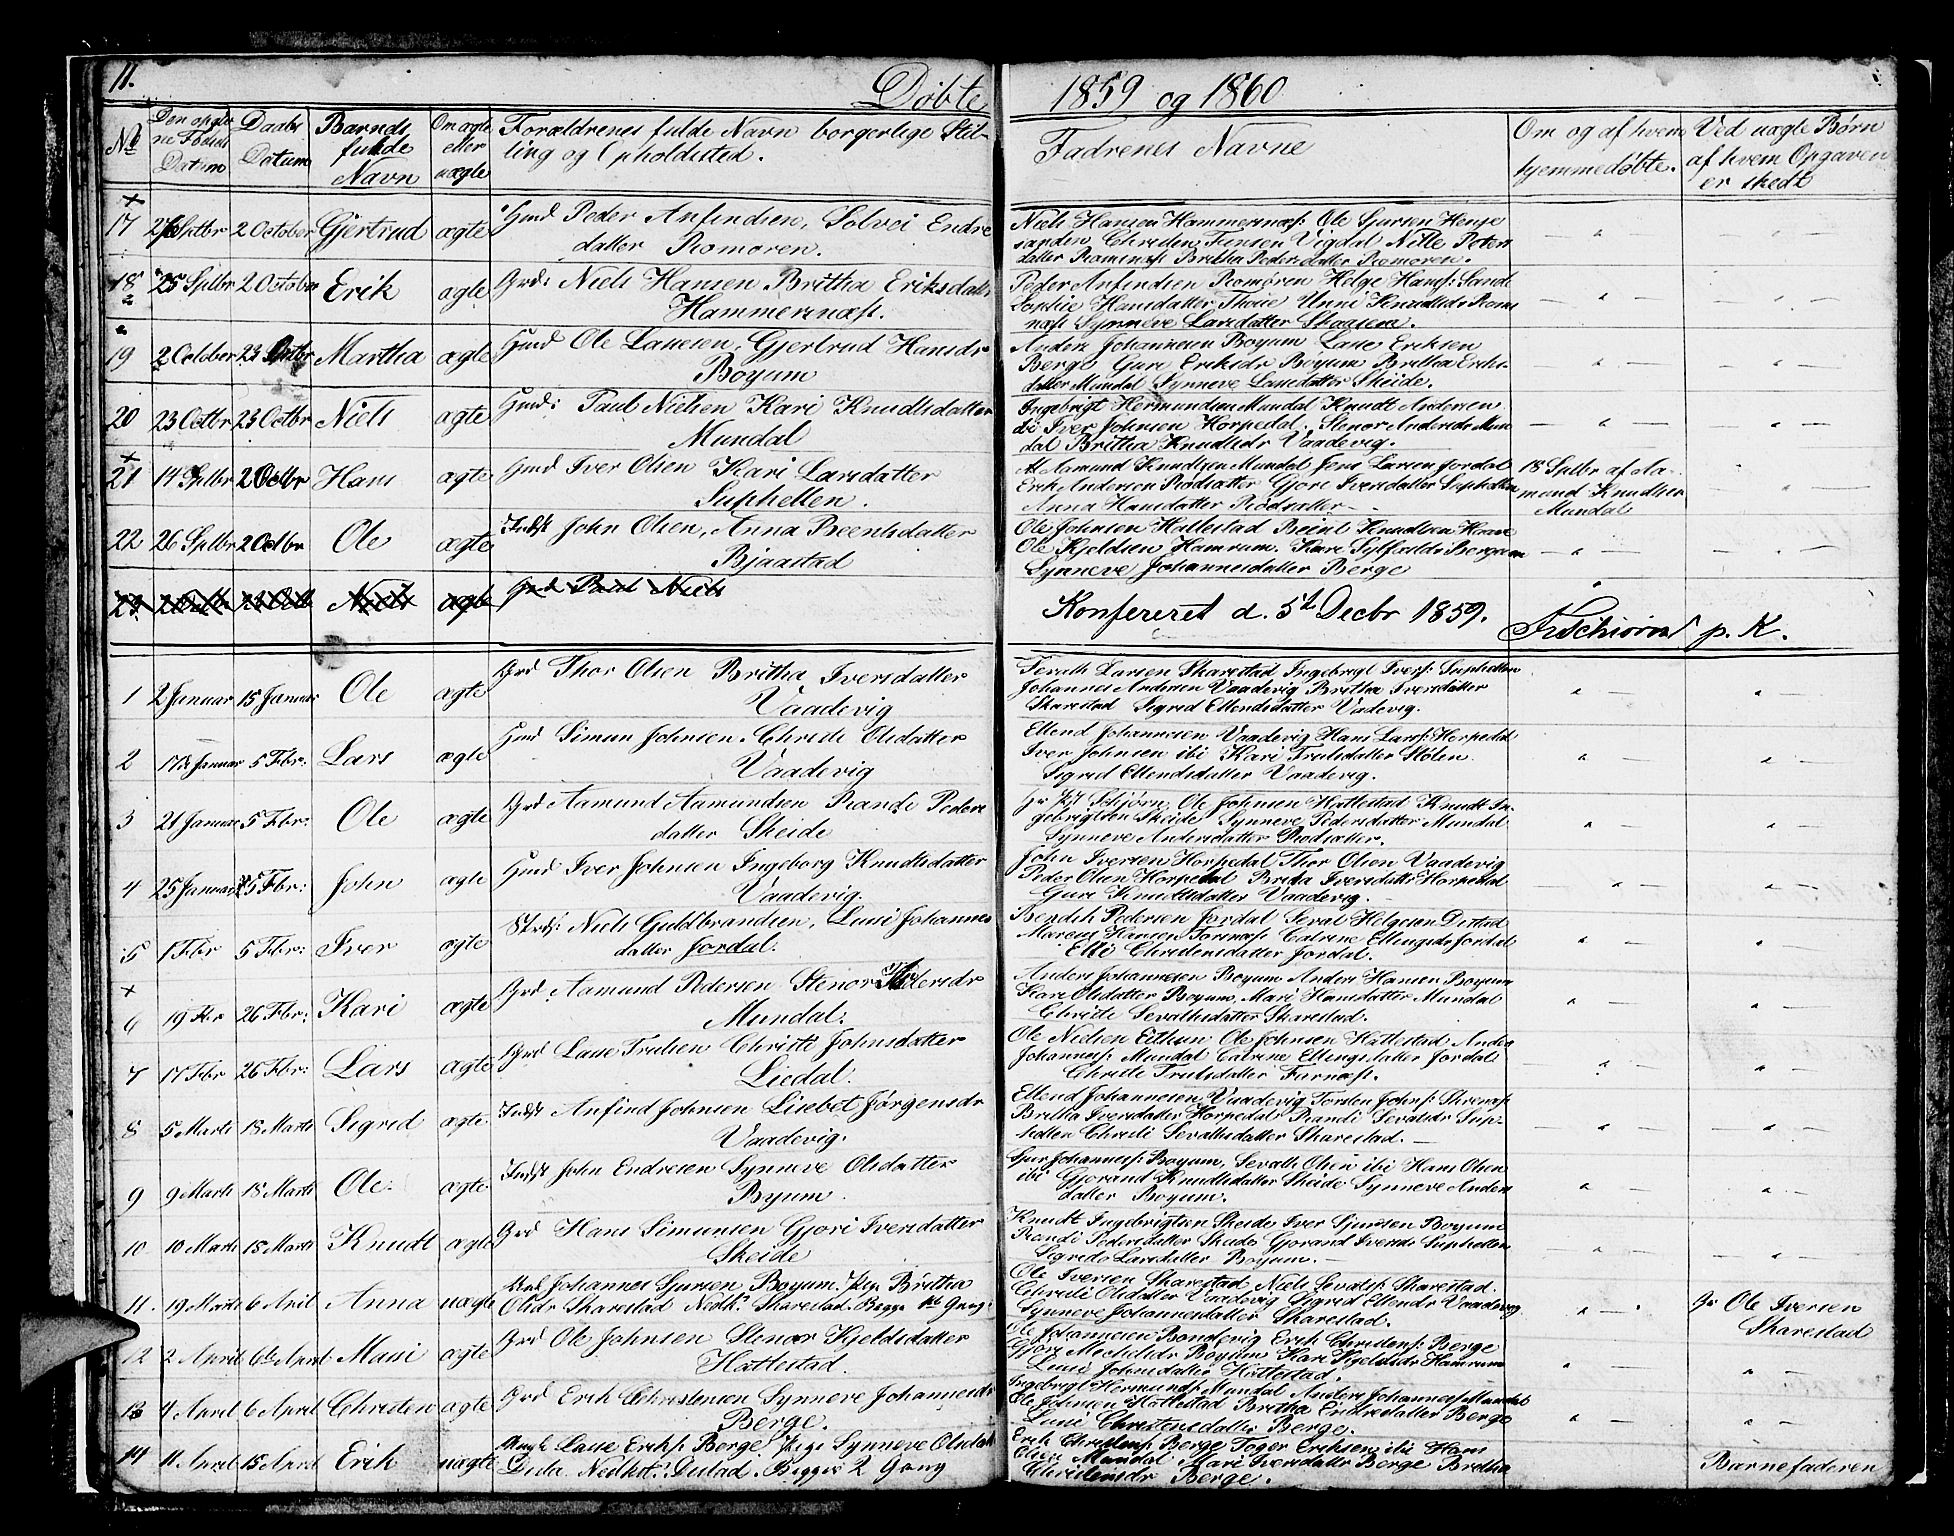 11.
Døbte
1859 og 1860
No
Den opgiv
ne Fødsels
Datum
Daabs
Datum
Barnets
fulde
Navn
Om ægte
eller
uægte
Forældrenes fulde Navn borgerlige Stil-
ling og Opholdssted.
Fadrenes Navne
Om og af hvem
hjemmedøbte.
Ved uægte Børn
af hvem Opgaven
er skedt
17 Sptbr 2 October Gjertrud ægte Hmd Peder Anfindsen, Solvei Endre
datter Romøren.
Niels Hansen Hammersnæs. Ole Sjursen Henje
sanden Christen Vigdal Nille Peters
datter Romnæs Britha Pedersdatter Romøren.
18 25 Sptbr 2 October Erik ægte Grd: Niels Hansen Britha Eriksdatter
Hammersnæs.
Peder Anfindsen Romøren Helge Hans: Sand
Sophie Hansdatter Unni Knudtsdr Rom
næs Synneve Larsdatter
19 2 October 23 Octbr Martha ægte Hmd Ole Lassesen, Gjertrud Hansdr
Boyum
Anders Johannesen Boyum Lasse Eriksen
Berge Guri Eriksdr Boyum Britha Eriks-
datter Mundal Synneve Lassedatter Skeide.
20 23 Octbr 23 Octbr Niels ægte Hmd: Paul Nielsen Kari Knudtsdatter
Mundal
Ingebrigt Hermundsen Mundal Knudt Andersen
ibi Iver Johnsen Horpedal. Stenor Andersdr Mun
dal Britha Knudtsdr Vaadevig.
21 14 Sptbr 2 Octbr Hans ægte Hmd Iver Olsen Kari Larsdatter
Suphellen.
Aamund Knudtsen Mundal Jens Larsen Jordal
Erik Andersen Rødsætter Gjøri Iversdatter Suphellen
Anna Hansdatter Rødsætter
18 Sptbr af Aa-
mund Knudtsen
Mundal
22 26 Sptbr 2 Octbr Ole ægte Indst John Olsen, Anna Beentsdatter
Bjaastad
Ole Johnsen Hattestad Beint Knudtsen
Ole Kjeldsen Hamrum. Kari Sylfestdr Borgum
Synneve Johannesdatter Berge
23. 23 Octb Niels ægte Grd Paul Niels
Konfereret d. 5t Decbr 1859. p. K.
1 2 Januar 15 Januar Ole ægte Grd Thor Olsen Britha Iversdatter
Vaadevig
Sevath Larsen Skarestad Ingebrigt Ivers: Suphellen
Johannes Andersen Vaadevig Britha Iversdatter
Skarestad Sigrid Ellendsdatter Vadevig.
2 17de Januar 5 Fbr: Lars ægte Hmd Simun Johnsen. Christi Olsdatter
Vaadevig
Ellend Johannesen Vaadevig Hans Lars: Horpedal
Iver Johnsen ibi Kari Trulsdatter Stølen
Sigrid Ellendsdatter Vaadevig.
3 21 Januar 5 Fbr: Ole ægte Grd Aamund Aamundsen Randi Peders
datter Skeide
Hr Schjørn, Ole Johnsen Hattestad Knudt In-
gebrigtsen Skeide Synneve Pedersdatter Mundal
Synneve Andersdatter Rødsætter.
4 25 Januar 5 Fbr: John ægte Hmd Iver Johnsen Ingeborg Knudtsdatter
Vaadevig.
John Iversen Horpedal Thor Olsen Vaadevig
Peder Olsen Horpedal Britha Iversdatter Horpedal
Guri Knudtsdatter Vaadevig.
5 1 Fbr 5 Fbr: Iver ægte Strds: Niels Guldbrandsen, Lussi Johannes
datter Jordal.
Bendik Pedersen Jordal Sevat Helgesen Distad
Marcus Hansen Catrine Ellingsdr Jordal
Elli Christensdatter Jordal.
6 19 Fbr 26 Fbr: Kari ægte Grd: Aamund Pedersen Stenor Thordersdr
Mundal.
Anders Johannesen Boyum Anders Hansen Boyum
Kari Olsdatter Boyum, Mari Hansdatter Mundal
Christi Sevathsdatter Skarestad.
7 17 Fbr 26 Fbr: Lars ægte Grd Lasse Trulsen Christi Johnsdatter
Liedal.
Ole Nielsen Eithun Ole Johnsen Hattestad Anders
Johannes: Mundal Catrine Ellingsdatter Jordal
Christi Trulsdatter Furnæs.
8 5 Marts 18 Marts Sigrid ægte Indst Anfind Johnsen Lisebet Jørgensdr
Vaadevig.
Ellend Johannesen Vaadevig Torsten Johns:
Britha Iversdatter Horpedal Randi Sevatsdr Sup-
hellen Christi Sevathsdatter Skarestad.
9 9 Marts 18 Marts Ole ægte Indst John Endresen Synneve Olsdatter
Byum.
Sjur Johannes: Boyum, Sevath Olsen ibi Hans Olsen
ibi Gjorand Knudtsdatter Skeide Synneve Anders
datter Boyum.
10 10 Marts 18 Marts Knudt ægte Grd Hans Simunsen Gjøri Iversdatter
Skeide
Knudt Ingebrigtsen Skeide Iver Sjursen Boyum
Randi Pedersdatter Skeide Gjorand Iversdr Suphellen
Sigrid Larsdatter Boyum.
11. 19 Marts 6 April Anna uægte Johannes Sjursen Boyum. Pige Britha
Olsdr Skarestad Nedk: Skarestad. Begge 1te Gang.
Ole Iversen Skarestad Niels Sevats: Skarestad.
Christi Olsdatter Vaadevig Sigrid Ellendsdr Vaadevig
Synneve Johannesdatter Skarestad.
Gr Ole Iversen
Skarestad
12 2 April 6te April Massi ægte Grd Ole Johnsen Stenor Kjeldsdatter
Hattestad.
Ole Johannesen Bondevig Erik Christens: Berge
Gjori Boyum Kari Kjeldsdr Hamrum
Lussi Johnsdatter Hattestad.
13 4 April 6 April Christen ægte Grd Erik Christensen Synneve Johannesdr
Berge.
Ingebrigt Hermunds: Mundal Anders Johannes: Mundal
Ole Johnsen Hattestad Britha Endresdatter Berge
Lussi Christensdatter Berge.
14 11 April 15 April Erik uægte Ungk Lasse Eriks: Berge, Pige Synneve Olsdatter
Nedkt: Distad. Begges 2 Gang
Erik Christens: Berge Toger Eriksen ibi Hans
Olsen Mundal Mari Iversdatter Berge Britha
Christensdr Berge.
Barnefaderen